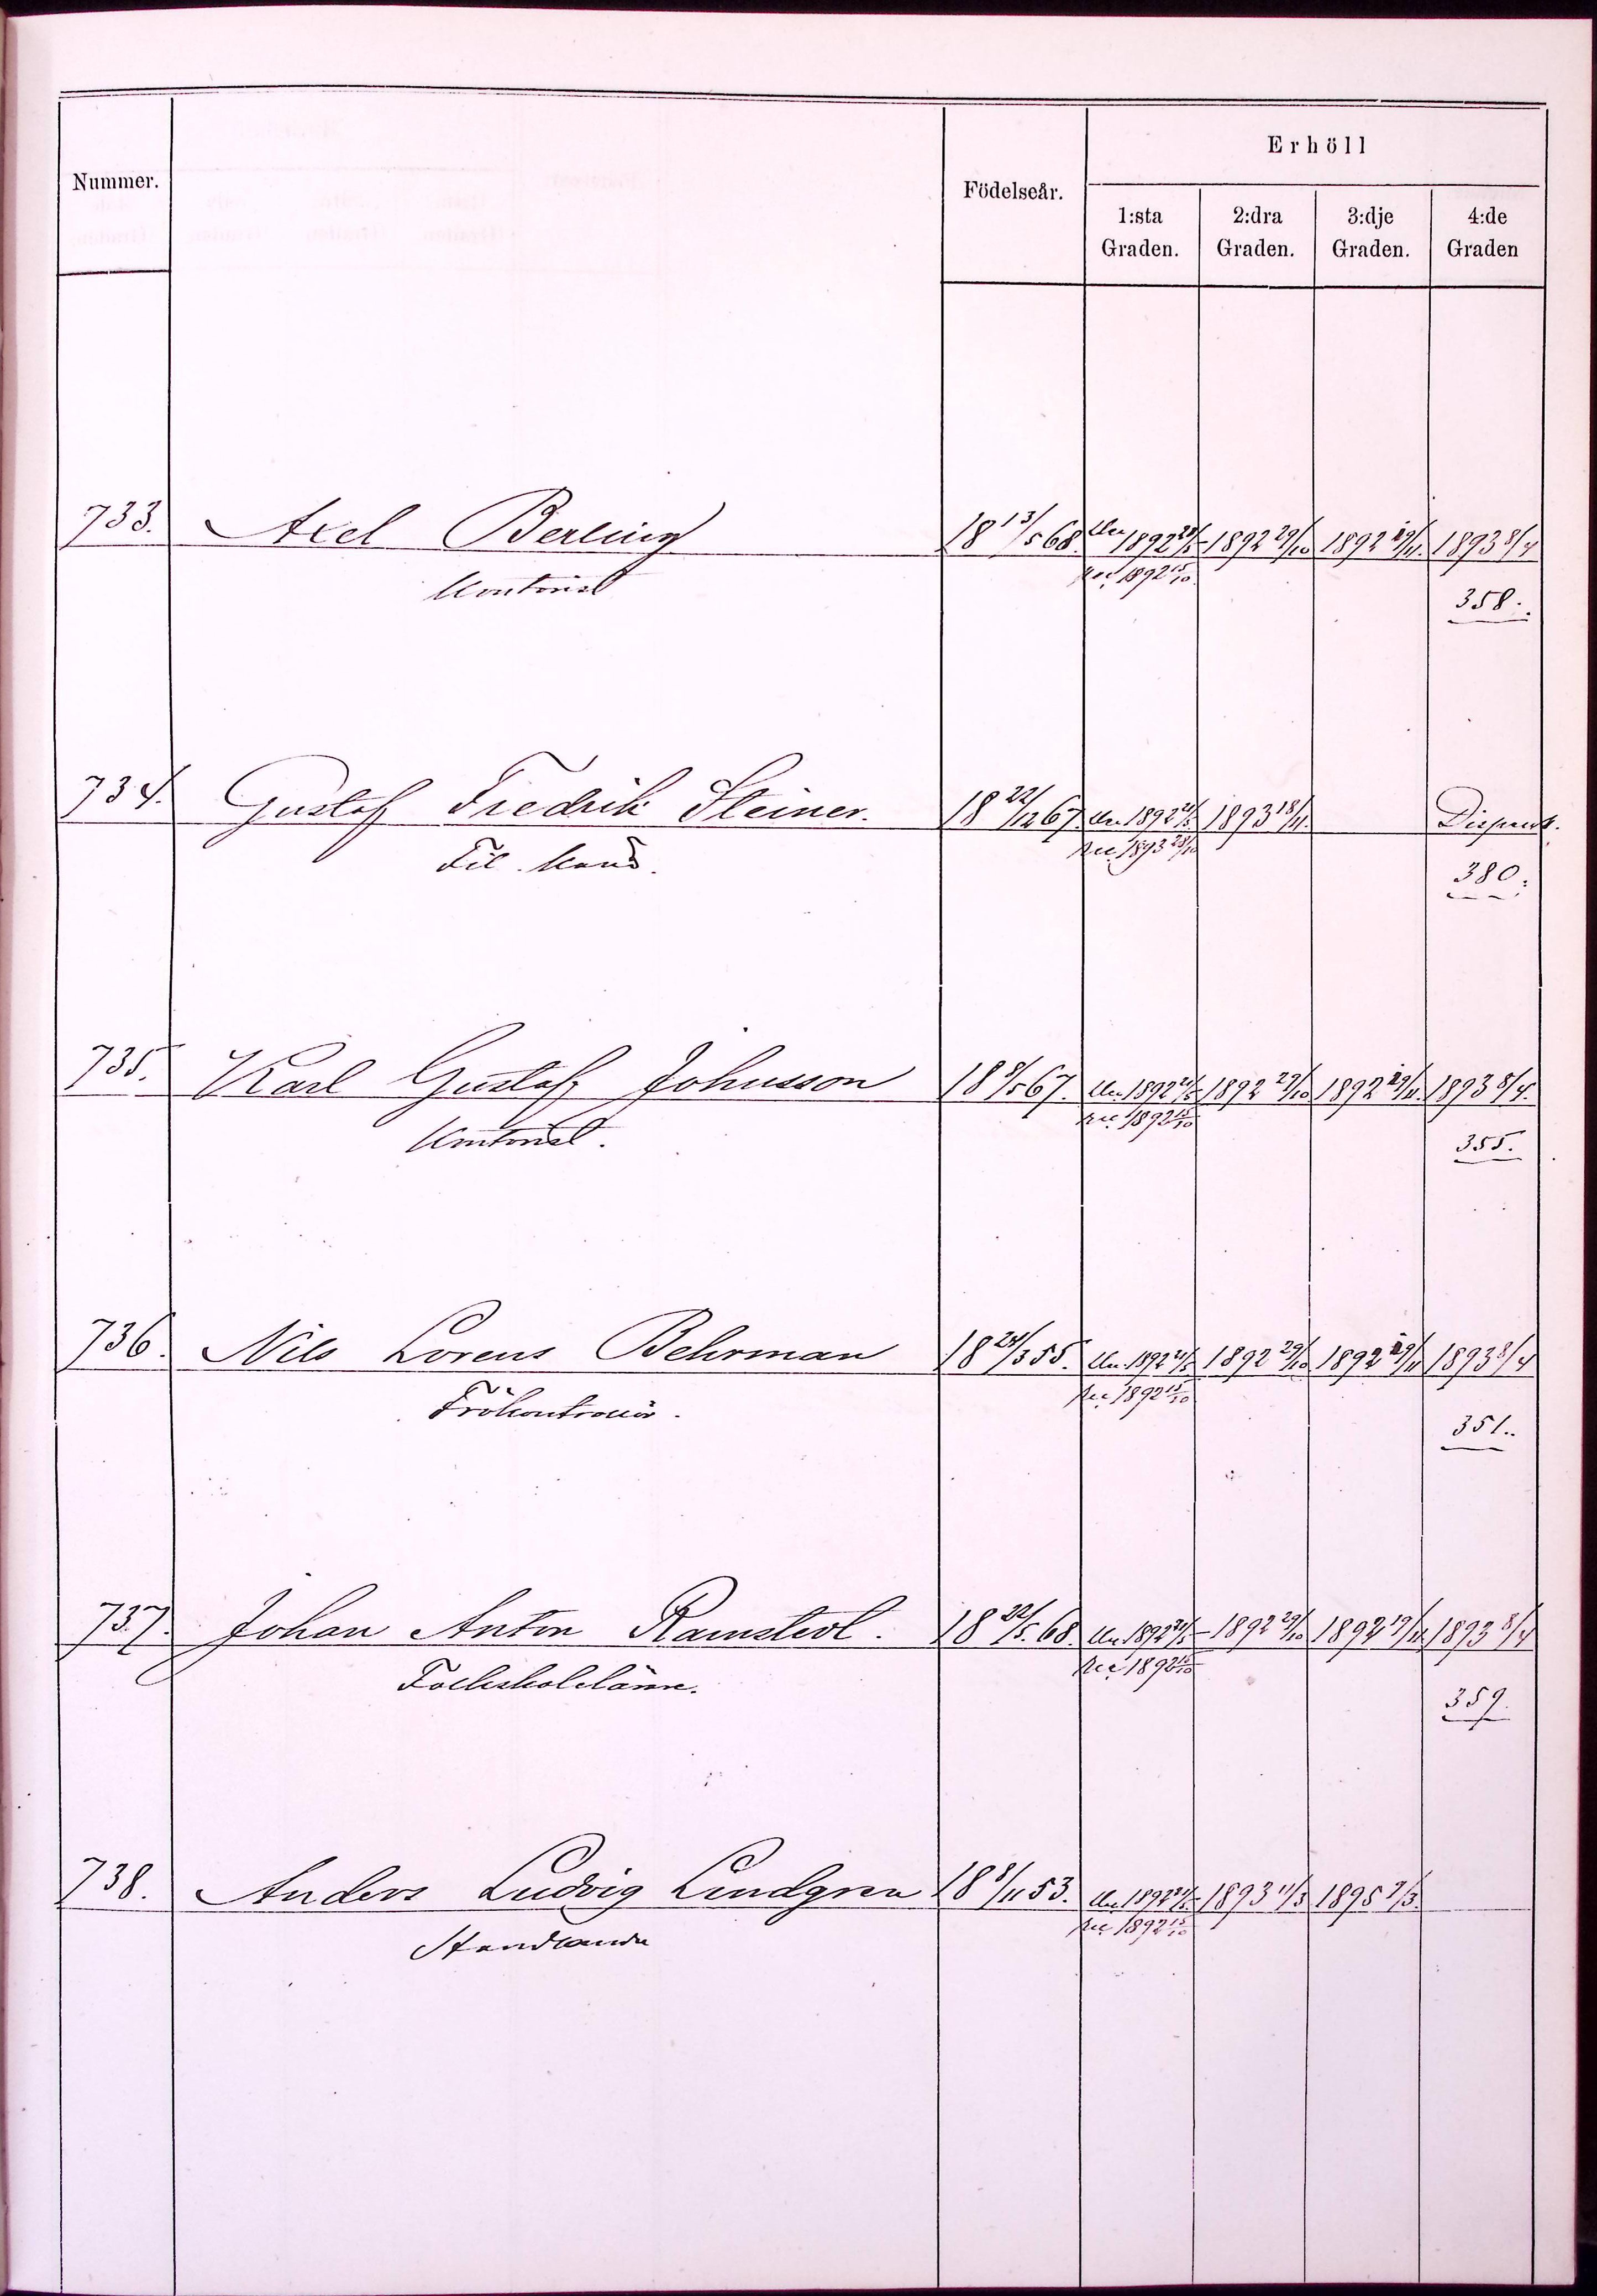 Erhöll
Nummer. Födelseår.
1:sta 2:dra 3:dje 4:de
Graden. Graden. Graden. Graden
733. Axel Berling 18 13/5 68. 1892 1892 29/10 1892 19/11. 1893 8/4
Kontorist Rec. 1892 15/10.
358.
734. Gustaf Fredrik Steiner. 18 22/12 67. 1892 21/5 1893 18/11.
Fil. Kand. Rec. 1893 28/10
380.
735. Karl Gustaf Johnsson 18 9/5 67. 1892 21/5 1892 29/10 1892 19/11. 1893 8/4.
Kontorist. Rec. 1892 15/10
355.
736. Nils Lorens Behrman 18 24/3 55. 1892 21/5 1892 29/10 1892 19/11 1893 8/4
Frökontrollör. Rec. 1892 15/10
351.
737. Johan Anton Ramstedt. 18 22/5. 68. 1892 21/5 1892 29/10 1892 19/11 1893 8/4
Folkskolelärare. Rec. 1892 15/10
359.
738. Anders Ludvig Lindgren 18 8/11 53. 1892 21/5 1893 11/3 1895 2/3.
Handlande Rec. 1892 15/10